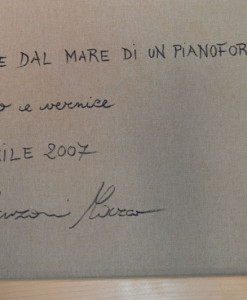 E DAL MARE DI UN PIANOFOR
o e vernice
ILE 2007
Marco